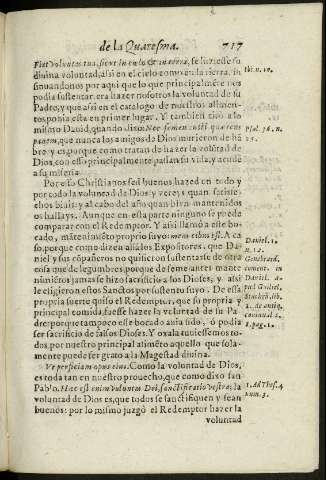 de la Quaresma. 717
Fiat voluntas tua, sicut in cælo & in terra, se hiziesse su
divina voluntad, assi en el cielo como en la tierra, in
sinuandonos por aqui que lo que principalmẽte nos
podia sustentar, era hazer nosotros la voluntad de su
Padre, y que assi en el catalogo de nuestros alimen-
tos ponia esta en primer lugar. Y tambien tivo a lo
mismo David, quando dixo: Nec semen eius quærens
panem, que nunca los amigos de Dios murieron de hã
bre, y es porque como tratan de hazer la volũtad de
Dios, con esso principalmente passan su vida, y acude
a su miseria.
Por esto Christianos sed buenos hazed en todo y
por todo la voluntad de Dios, y vereis quan satisfe-
chos biuis: y al cabo del año quan bien mantenidos
os hallays. Aunque en esta parte ninguno se puede
comparar con el Redemptor. Y assi llamò a este bo-
cado, mantenimiẽto proprio suyo: meus cibus est. A ca
so, porque como dizen assi los Expositores, que Da-
niel y sus cõpañeros no quisieron sustentarse de otra
cosa que de legumbres, porque de semejantes mante
nimiẽtos jamas se hizo sacrificio a los Dioses, y assi
le eligieron estos Sanctos por sustento suyo. De essa
propria suerte quiso el Redemptor, que su propria y
principal comida, fuesse hazer la voluntad de su Pa-
dre: porque tampoco esse bocado avia sido, ò podia
ser sacrificio de falsos Dioses. Y oxala tuuiessemos to-
dos, por nuestro principal alimẽto aquello que sola-
mente puede ser grato a la Magestad divina.
Vt perficiam opus eius. Como la voluntad de Dios,
es toda tan en nuestro prouecho, que como dixo san
Pablo. Hæc est enim voluntas Dei sanctificatio vestra; la
voluntad de Dios es, que todos se sanctifiquen y sean
buenos: por lo mismo juzgó el Redemptor hazer la
voluntad
Psal. 36. n.
25.
Daniel. 1.
n. 12
Genebrard.
coment. in
Daniel.
1. Ad Thes. 4
num. 3.